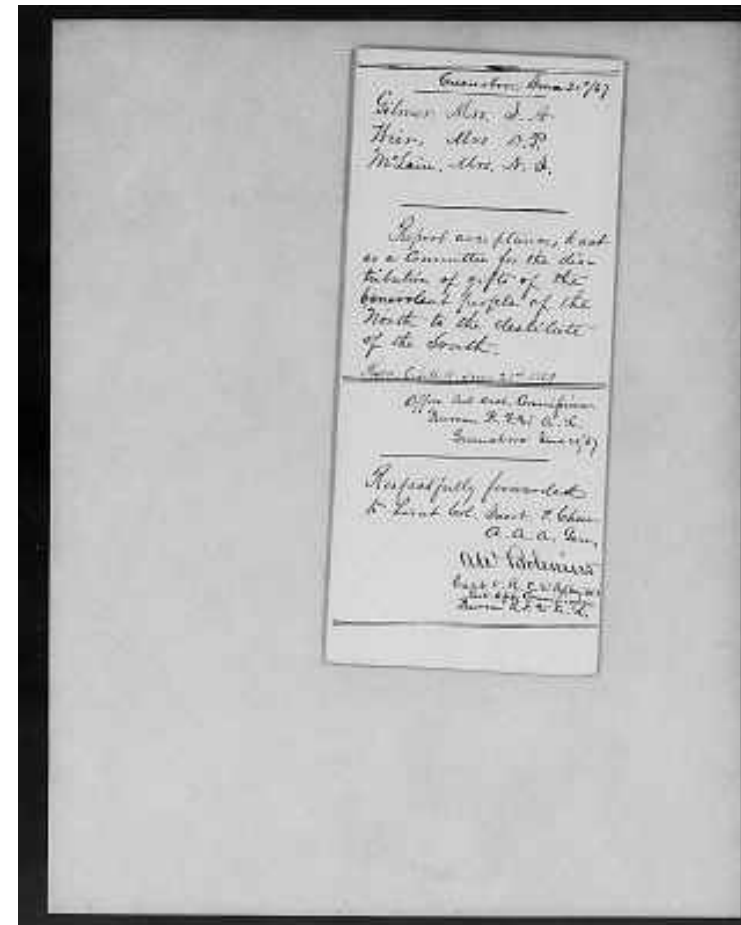 Greensboro June 21st/67
Gilmer Mrs. J. A.
Weir, Mrs. D. P.
McLain, Mrs. N. D.
Report acceptance, to act
as a Committee for the dis-
tribution of gifts of the
benevolent people of the
North to the destitute
of the South.
June 21st 1867
Office Commissioner
Bureau R. F. & A. L.
Greensboro June 21/67
Respectfully forwarded
to Lieut Col. Jacob F. Chur
A. A. A. Gen.
Bureau R. F. & A. L.